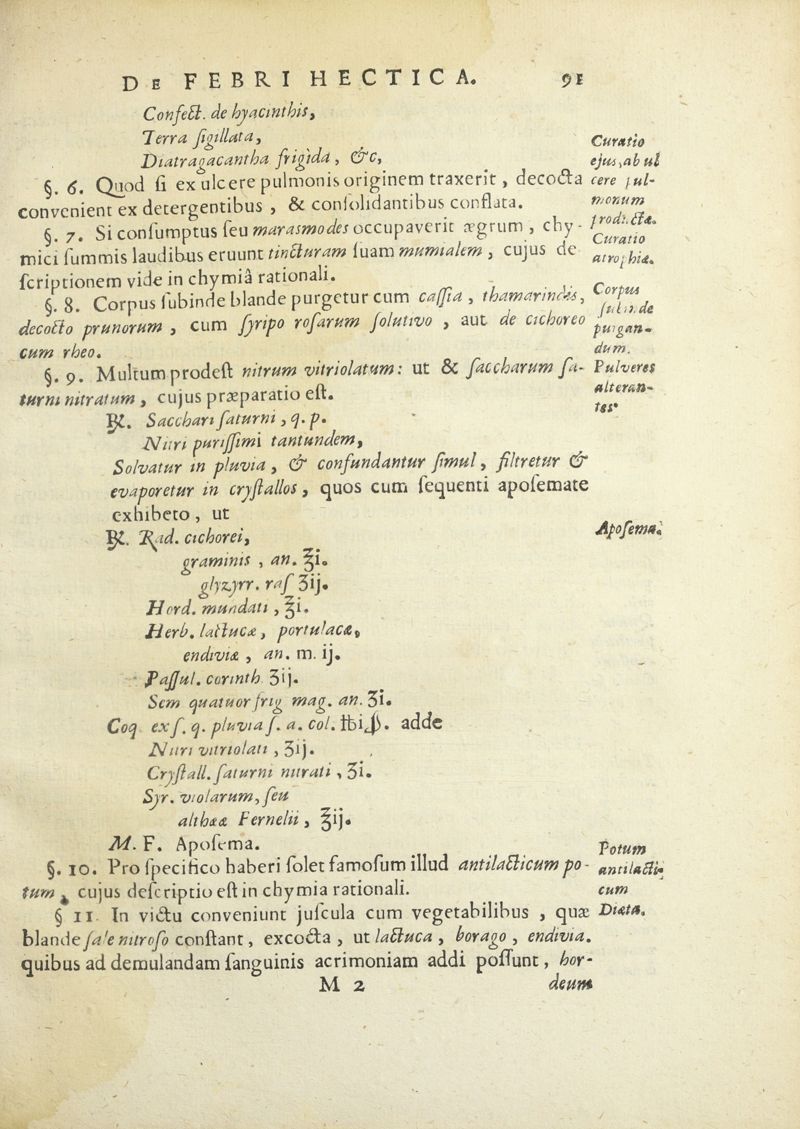 DE FEBRI HECTICA. 91
Confect. de hyacinthis,
Terra sigillata,
Diatragacantha frigida, &c,
§. 6. Quod si ex ulcere pulmonis originem traxerit, decocta
convenient ex detergentibus, & consolidantibus conflata.
§. 7. Si consumptus seu marasmodes occupaverit ægrum, chy-
mici summis laudibus eruunt tincturam suam mumialem, cujus de
scriptionem vide in chymiâ rationali.
§. 8. Corpus subinde blande purgetur cum cassia, thamarindis,
decocto prunorum, cum syripo rosarum solutivo, aut de cichoreo
cum rheo.
§. 9. Multum prodest nitrum vitriolatum: ut & saccharum sa-
turni nitratum, cujus præparatio est.
℞. Sacchari saturni, q. p.
Nitri purissimi tantundem,
Solvatur in pluvia, & confundantur simul, filtretur &
evaporetur in crystallos, quos cum sequenti aposemate
exhibeto, ut
℞. Rad. cichorei,
graminis, an. ℥i.
glyzyrr. ras ʒij.
Hord. mundati, ℥i.
Herb. lactucæ, portulacæ,
endiviæ, an. m. ij.
Passul. corinth. ʒij.
Sem quatuor frig mag. an. ʒi.
Coq ex s. q. pluvia s. a. col. ℔iβ. adde
Nitri vitriolati, ʒij.
Crystall. saturni nitrati, ʒi.
Syr. violarum, seu
althææ Fernelii, ℥ij.
M. F. Aposema.
§. 10. Pro specifico haberi solet famosum illud antilacticum po-
tum, cujus descriptio est in chymia rationali.
§ 11. In victu conveniunt juscula cum vegetabilibus, quæ
blande sale nitroso constant, excocta, ut lactuca, borago, endivia.
quibus ad demulandam sanguinis acrimoniam addi possunt, hor-
M 2 deum
Curatio
ejus, ab ul
cere pul-
monum
producta.
Curatio
atrophiæ.
Corpus
subinde
purgan-
dum.
Pulveres
alteran-
tes.
Aposema.
Potum
antilacti-
cum
Diæta.